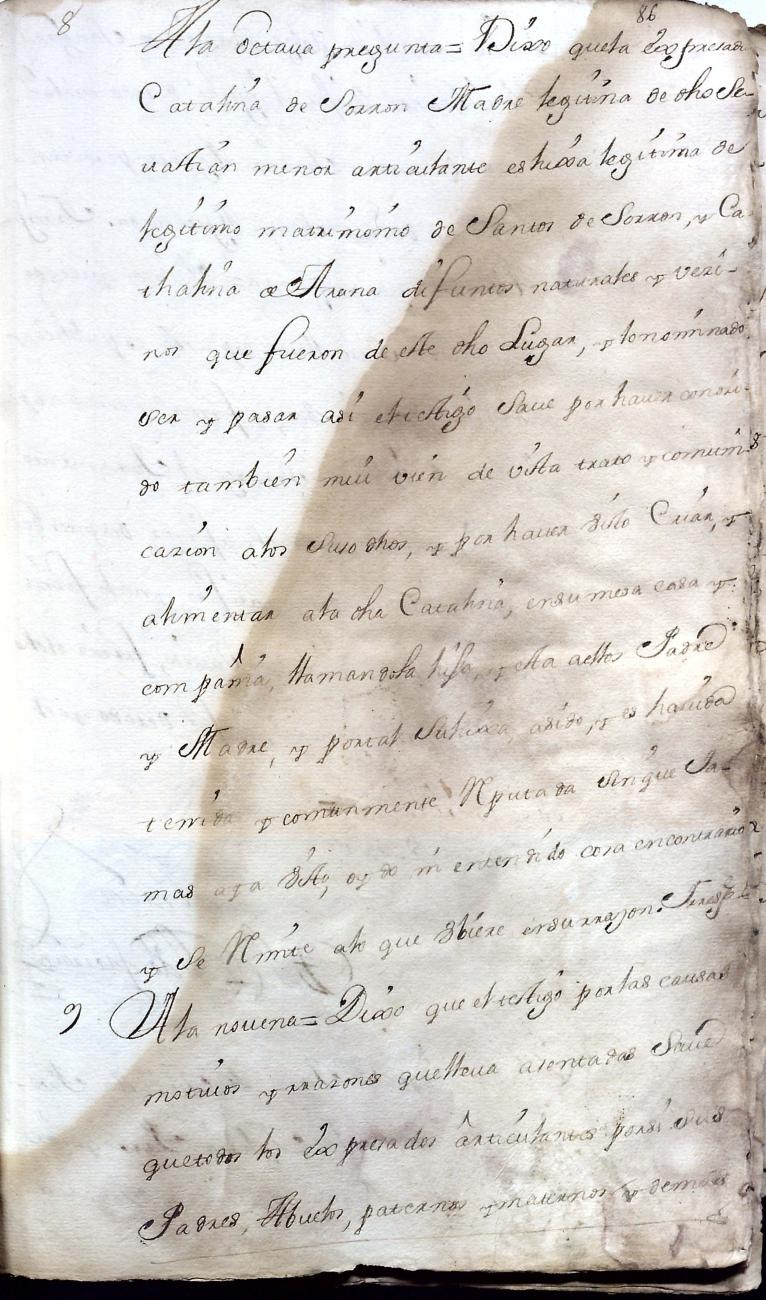 86
8 A la octaua pregunta = Dixo que la expresada
Cathalina de Sorron Madre legitima de dho Se-
uastian menor articulante es hixa legitima de
legitimo matrimonio de Santos de Sorron, y Ca
thalina de Arana difuntos naturales y vezi-
nos que fueron de este dho Lugar, y lo nominado
ser y pasar asi el testigo saue por hauer conozi-
do tambien mui vien de vista trato y comuni-
cazion a los suso dhos, y por hauer visto Criar, y
alimentar a la dha Catalina, en su mesa casa y
compañia, llamandola hija, y esta a ellos Padre
y Madre, y por tal su hixa, a sido, y es hauida
tenida y comunmente Reputada sin que Ja-
mas aya visto, oydo ni entendido cosa en contrario
y se Rimite a lo que ubiere en su rrazon
9 A la novena = Dixo que el testigo por las causas
motiuos y rrazones que lleua asentadas Saue
que todos los expresados articulantes por si sus
Padres, Abuelos, paternos y maternos y demas